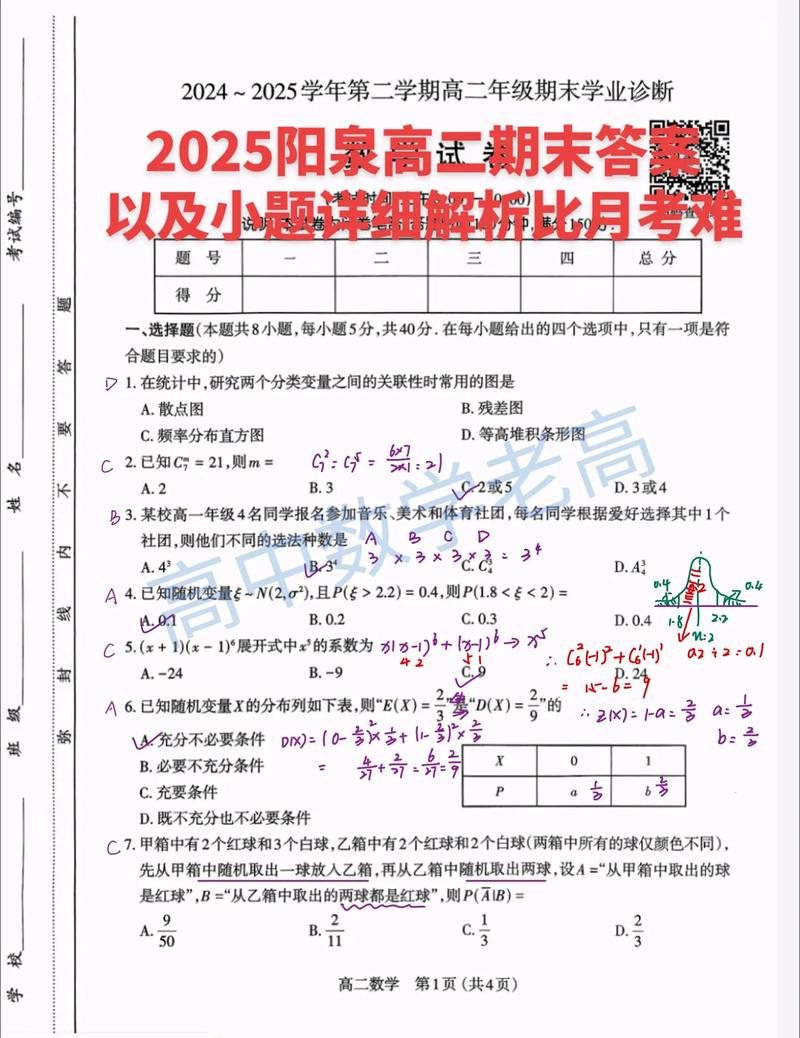 2024～2025学年第二学期高二年级期末学业诊断
2025阳泉高二期末答案
以及小题详细解析比月考难
题 号 一 二 三 四 总 分
得 分
一、选择题(本题共8小题,每小题5分,共40分.在每小题给出的四个选项中,只有一项是符
合题目要求的)
D 1.在统计中,研究两个分类变量之间的关联性时常用的图是
A.散点图 B.残差图
C.频率分布直方图 D.等高堆积条形图
C 2.已知C₇ᵐ = 21,则m = C₇² = C₇⁵ = 6×7/2×1 = 21
A. 2 B. 3 C. 2或5 D. 3或4
B 3.某校高一年级4名同学报名参加音乐、美术和体育社团,每名同学根据爱好选择其中1个
社团,则他们不同的选法种数是 A B C D
3 × 3 × 3 × 3 = 3⁴
A. 4³ B. 3⁴ C. C₄³ D. A₄³
A 4.已知随机变量ξ~N(2,σ²),且P(ξ > 2.2) = 0.4,则P(1.8 < ξ < 2) =
0.4 0.2 0.4
1.8 2.2
μ=2
A. 0.1 B. 0.2 C. 0.3 D. 0.4
0.2 ÷ 2 = 0.1
C 5.(x + 1)(x − 1)⁶展开式中x⁵的系数为 x(x−1)⁶ + (x−1)⁶ → x⁵
4 2 5 1
∴ C₆²(−1)² + C₆¹(−1)¹
= 15 − 6 = 9
A. −24 B. −9 C. 9 D. 24
A 6.已知随机变量X的分布列如下表,则“E(X) = 2/3”是“D(X) = 2/9”的
∴ E(X) = 1−a = 2/3 a = 1/3
b = 2/3
A.充分不必要条件 D(X) = (0 − 2/3)² × 1/3 + (1 − 2/3)² × 2/3
= 4/27 + 2/27 = 6/27 = 2/9
B.必要不充分条件
C.充要条件
D.既不充分也不必要条件
X 0 1
P a 1/3 b 2/3
C 7.甲箱中有2个红球和3个白球,乙箱中有2个红球和2个白球(两箱中所有的球仅颜色不同),
先从甲箱中随机取出一球放入乙箱,再从乙箱中随机取出两球,设A =“从甲箱中取出的球
是红球”,B =“从乙箱中取出的两球都是红球”,则P(A̅|B) =
A. 9/50 B. 2/11 C. 1/3 D. 2/3
高二数学 第1页(共4页)
高中数学老高
考试编号
姓 名
班 级
学 校
弥 封 线 内 不 要 答 题